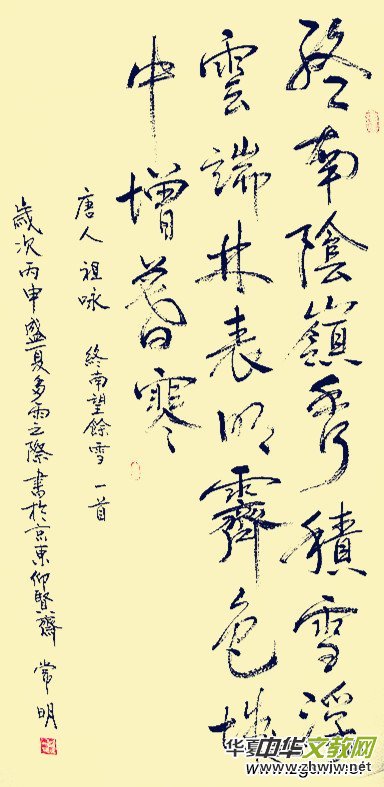 終南陰嶺秀積雪浮
雲端林表明霽色城
中增暮寒
唐人祖咏 終南望餘雪一首
歲次丙申盛夏多雨之際書於京東仰賢齋 常明
中华文教网
www.zhwjw.net